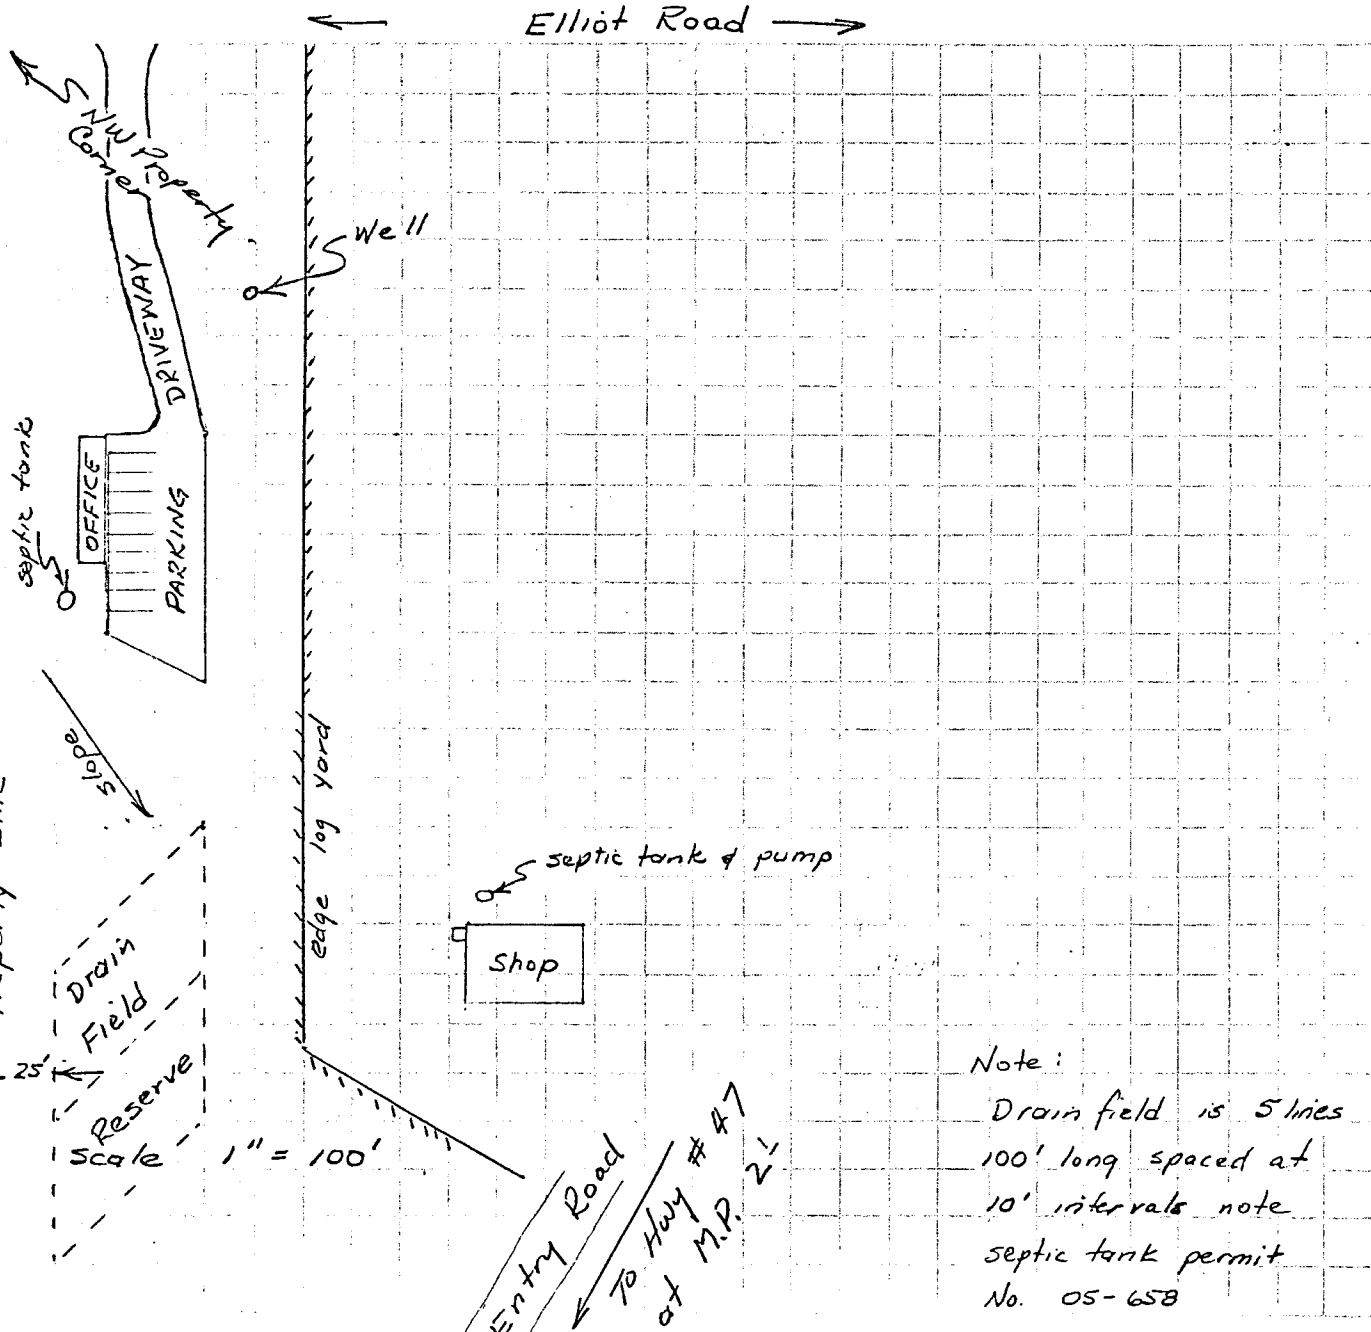 Elliot Road
NW Property
Corner
Well
DRIVEWAY
septic tank
OFFICE
PARKING
slope
edge log yard
septic tank & pump
Shop
Drain
Field
25'
Reserve
Scale 1" = 100'
Entry Road
To Hwy # 47
at M.P.
Note:
Drain field is 5 lines
100' long spaced at
10' intervals note
septic tank permit
No. 05-658